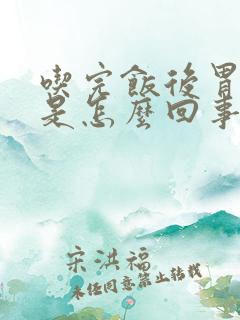 喫完飯後胃
是怎麼回事
宋洪福
未經同意禁止轉載